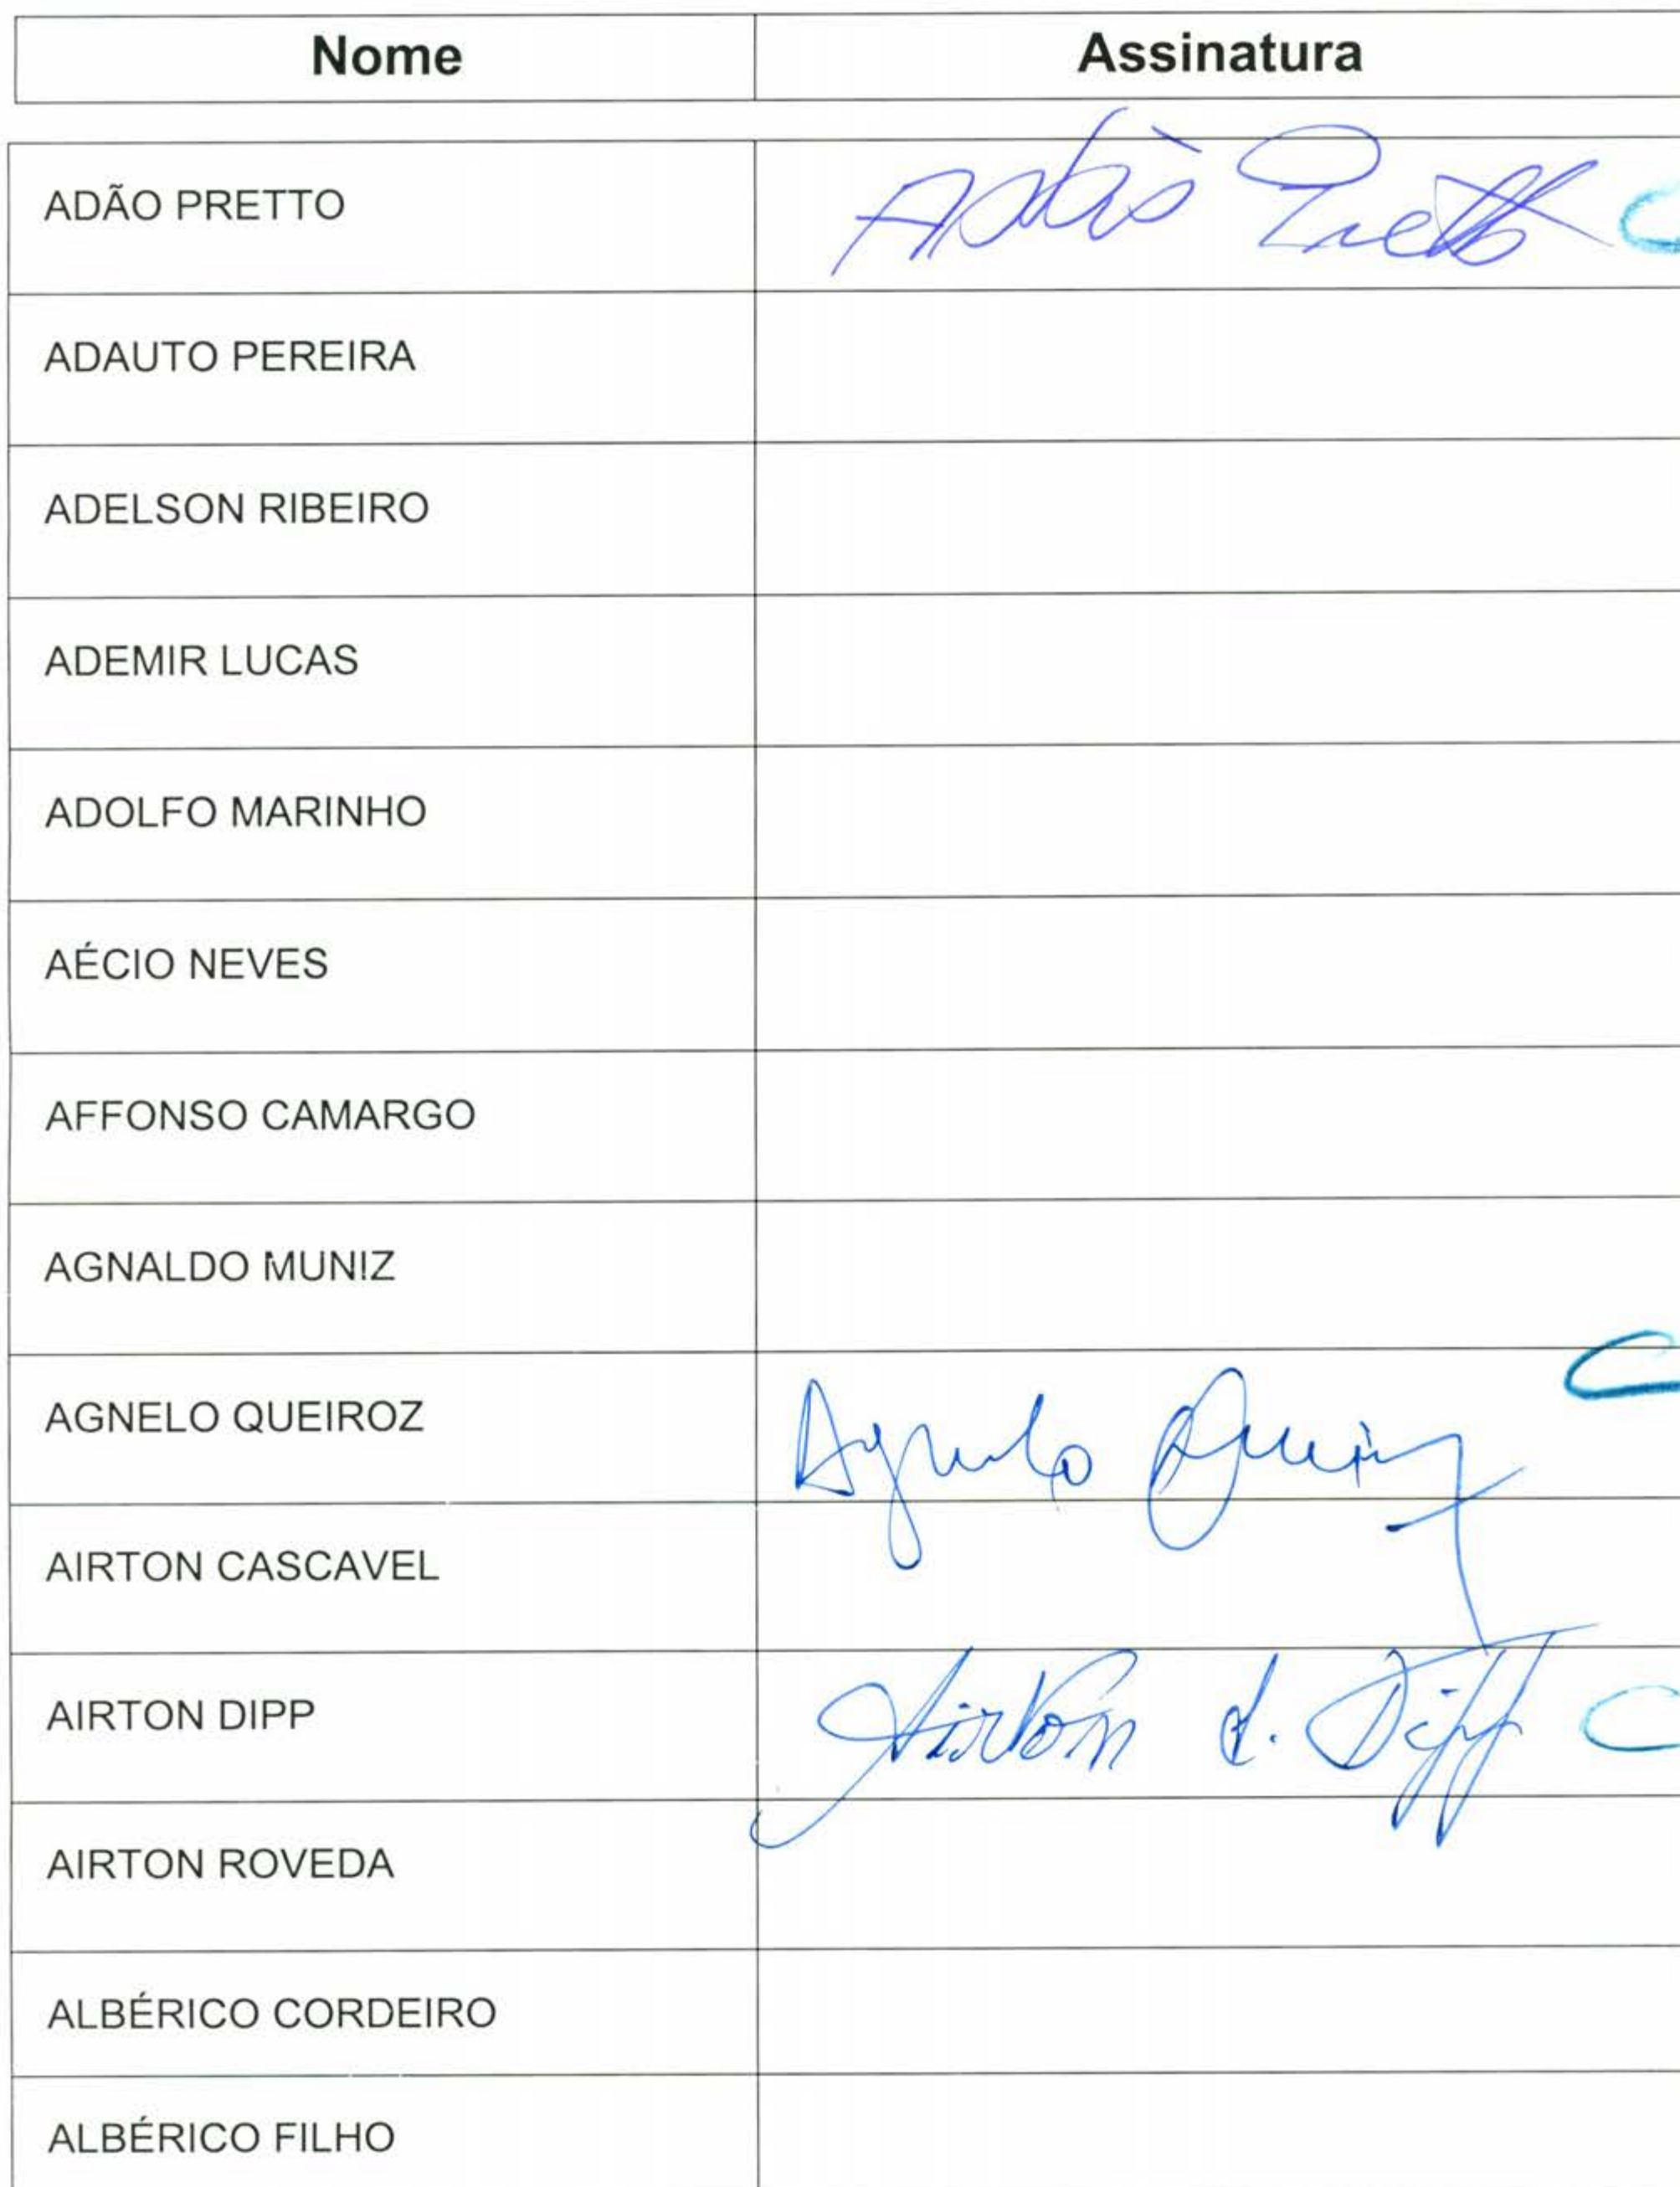 Nome Assinatura
ADÃO PRETTO Adão Pretto
ADAUTO PEREIRA
ADELSON RIBEIRO
ADEMIR LUCAS
ADOLFO MARINHO
AÉCIO NEVES
AFFONSO CAMARGO
AGNALDO MUNIZ
AGNELO QUEIROZ Agnelo Queiroz
AIRTON CASCAVEL
AIRTON DIPP Airton L. Dipp
AIRTON ROVEDA
ALBÉRICO CORDEIRO
ALBÉRICO FILHO